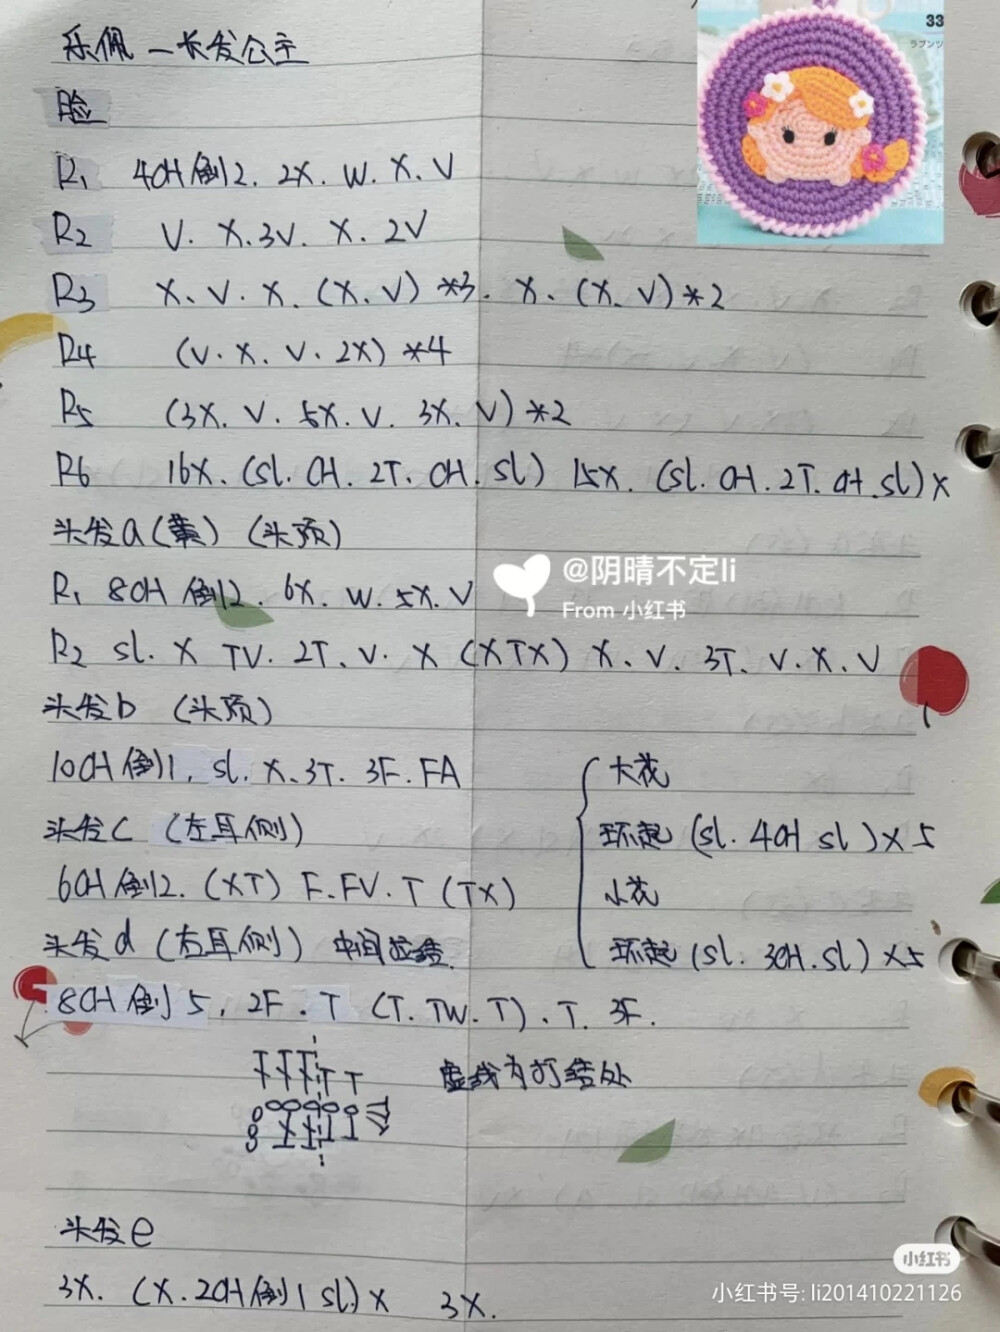 乐佩 — 长发公主
33
ラプンツ
脸
R1 4CH 倒2. 2X. W. X. V
R2 V. X. 3V. X. 2V
R3 X. V. X. (X. V) *3. X. (X. V) *2
R4 (V. X. V. 2X) *4
R5 (3X. V. 5X. V. 3X. V) *2
R6 16X. (sl. CH. 2T. CH. sl) 15X. (sl. CH. 2T. CH. sl) X
头发a (黄) (头顶)
@阴晴不定li
From 小红书
R1 8CH 倒2. 6X. W. 5X. V
R2 sl. X TV. 2T. V. X (XTX) X. V. 3T. V. X. V
头发b (头顶)
10CH 倒1, sl. X. 3T. 3F. FA
头发c (左耳侧)
6CH 倒2. (XT) F. FV. T (TX)
大花
环起 (sl. 4CH sl) X 5
小花
环起 (sl. 3CH. sl) X5
头发d (右耳侧) 中间
8CH 倒5, 2F. T (T. TW. T). T. 3F.
虚线为打结处
头发e
3X. (X. 2CH 倒1 sl) X 3X.
小红书
小红书号: li201410221126